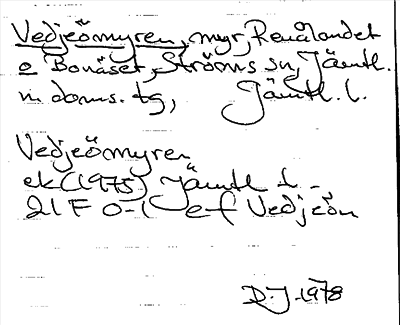 Vedjeömyren, myr, Renålandet
o Bonäset, Ströms sn, Jämtl.
n. doms. tg, Jämtl. l.
Vedjeömyren
ek (1975) Jämtl l
21F 0-1 e-f Vedjeön
D.J. 1978